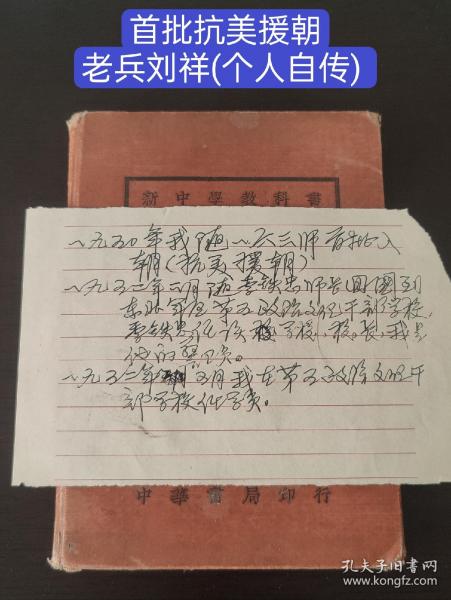 首批抗美援朝
老兵刘祥(个人自传)
新中学教科書
一九五〇年我随一六三师首批入
朝(抗美援朝)
一九五二年二月随李铁忠师长回国到
东北军区第五政治文化干部学校,
李铁忠任该校学校、校长,我是
他的警卫员。
一九五二年 五月我在第五政治文化干
部学校任学员。
中華書局印行
孔夫子旧书网
www.kongfz.com